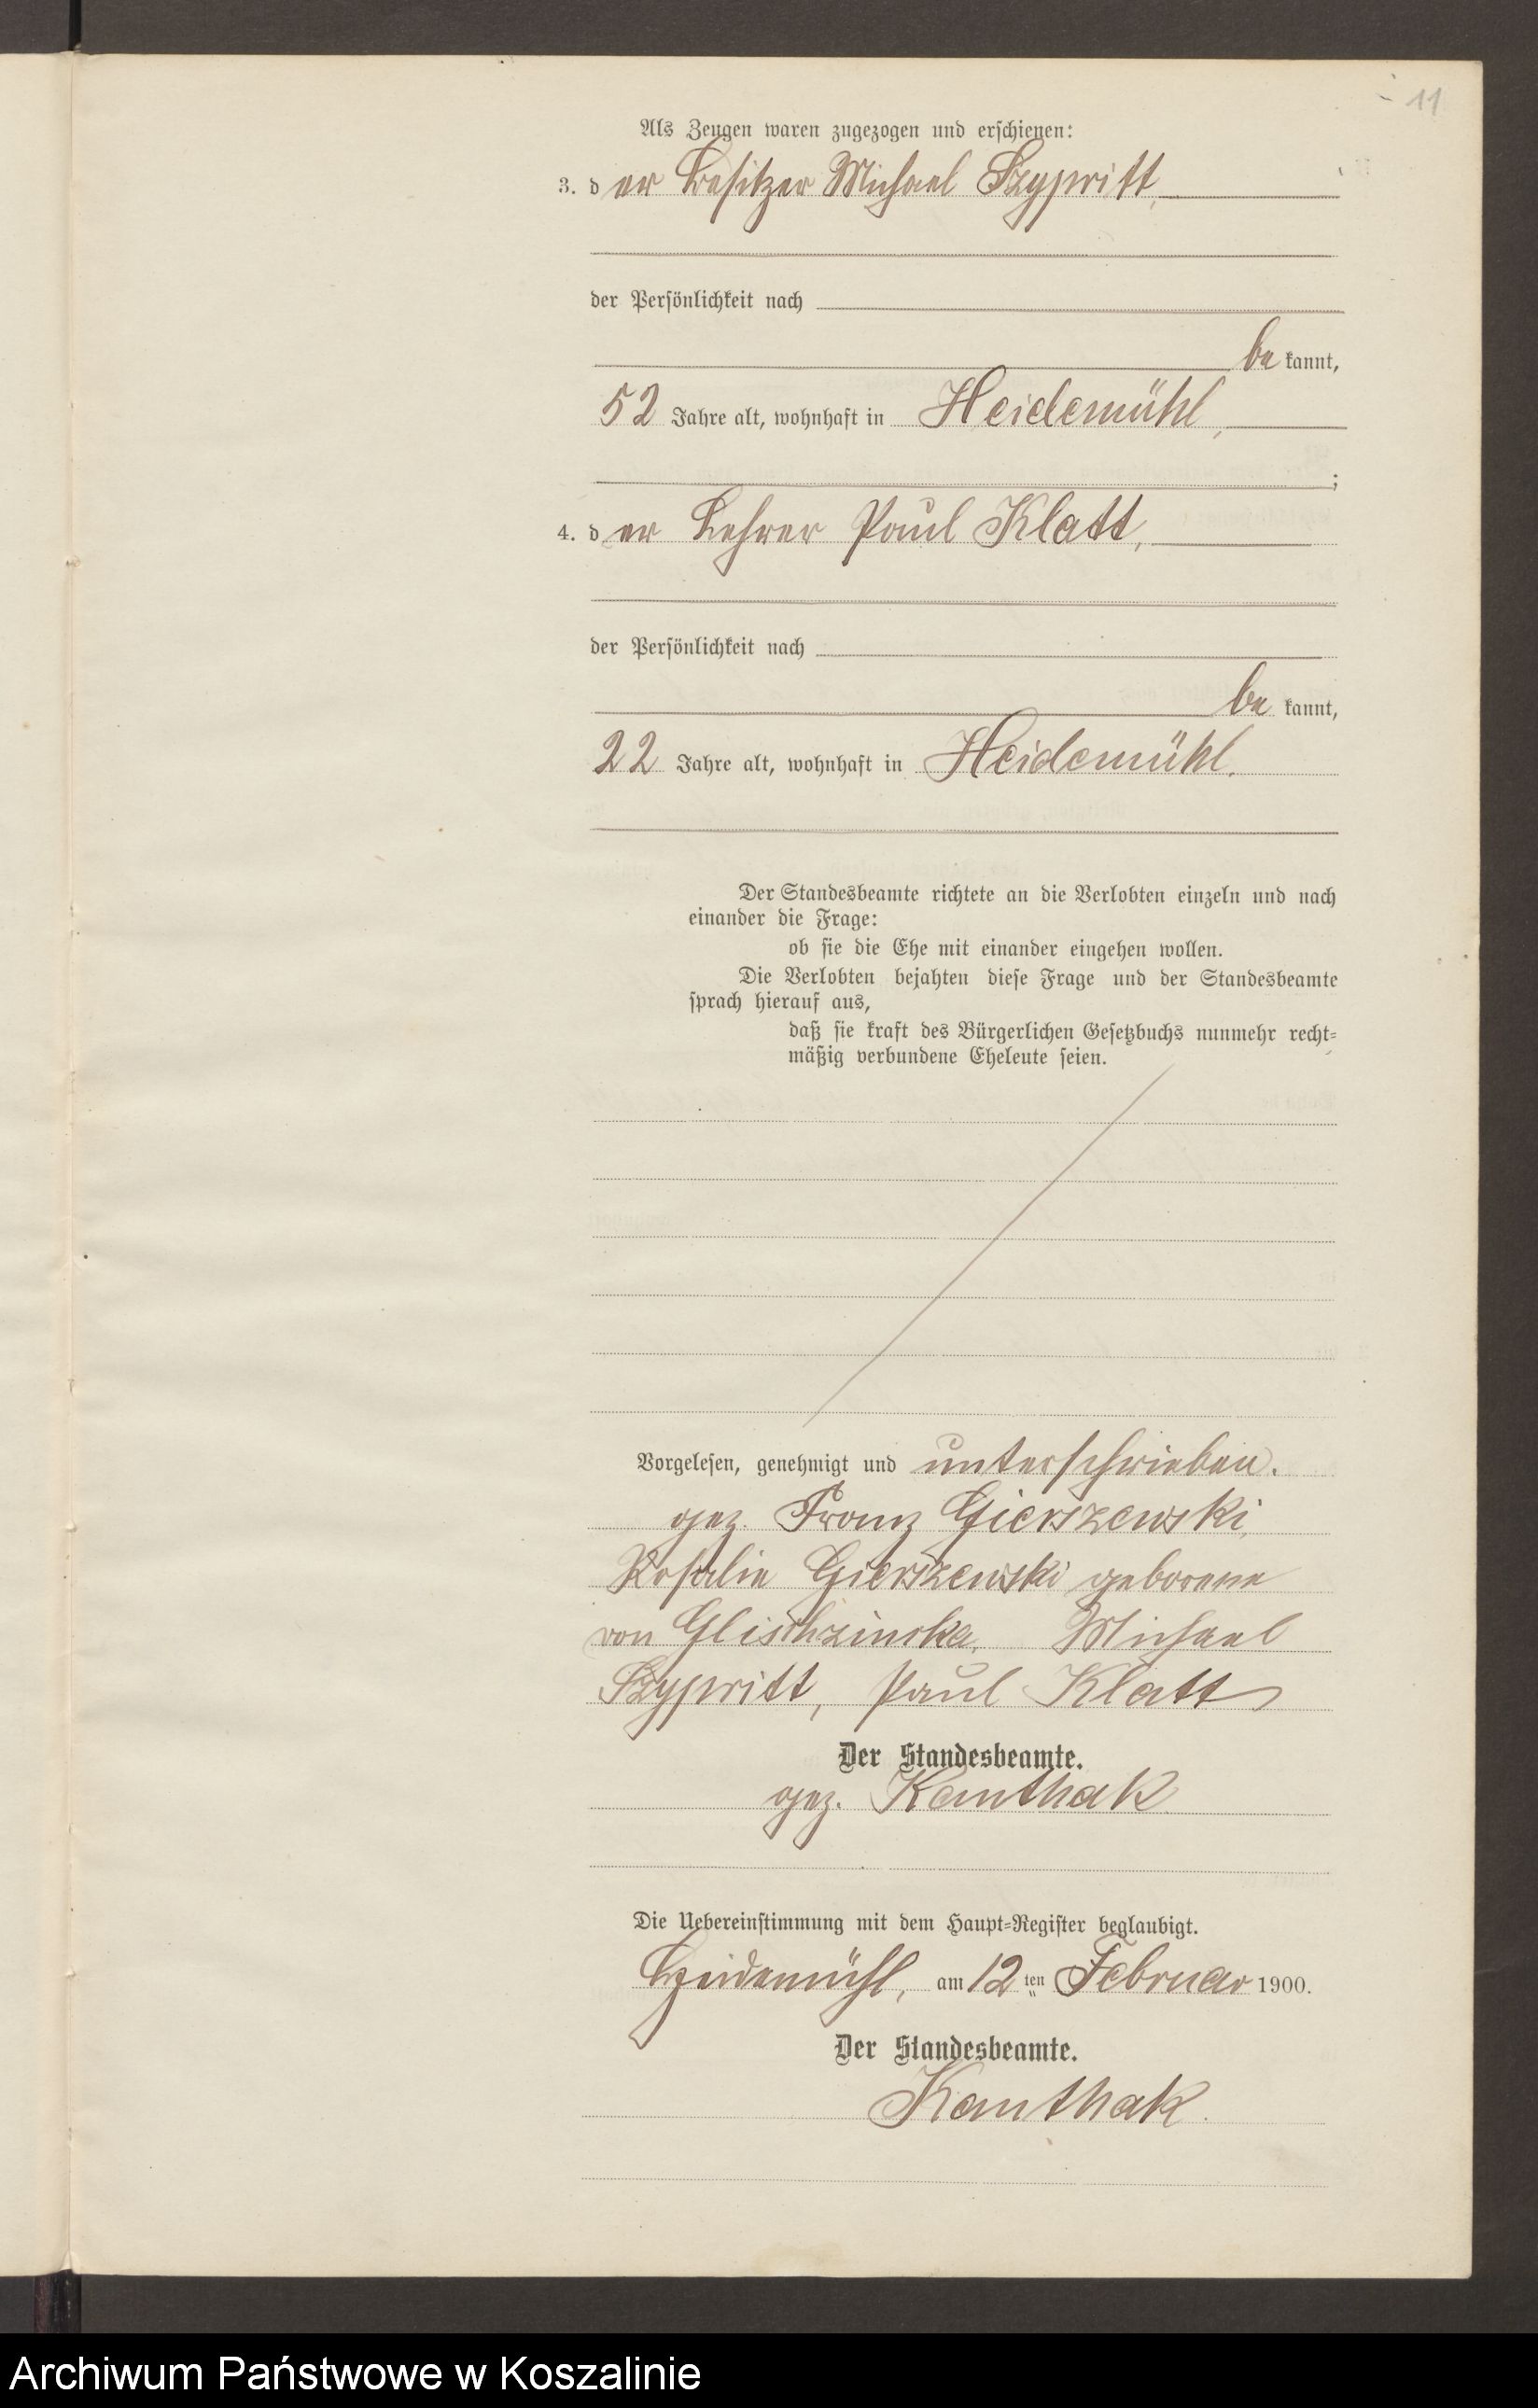 11
Als Zeugen waren zugezogen und erschienen:
3. d er Besitzer Michael Szypritt,
der Persönlichkeit nach
be kannt,
52 Jahre alt, wohnhaft in Heidemühl,
;
4. d er Lehrer Paul Klatt,
der Persönlichkeit nach
be kannt,
22 Jahre alt, wohnhaft in Heidemühl.
Der Standesbeamte richtete an die Verlobten einzeln und nach
einander die Frage:
ob sie die Ehe mit einander eingehen wollen.
Die Verlobten bejahten diese Frage und der Standesbeamte
sprach hierauf aus,
daß sie kraft des Bürgerlichen Gesetzbuchs nunmehr recht=
mäßig verbundene Eheleute seien.
Vorgelesen, genehmigt und unterschrieben.
gez. Franz Gierszewski,
Rosalie Gierszewski geborene
von Glischzinska, Michael
Szypritt, Paul Klatt
Der Standesbeamte.
gez. Kanthak
Die Uebereinstimmung mit dem Haupt=Register beglaubigt.
Heidemühl, am 12 ten Februar 1900.
Der Standesbeamte.
Kanthak.
Archiwum Państwowe w Koszalinie